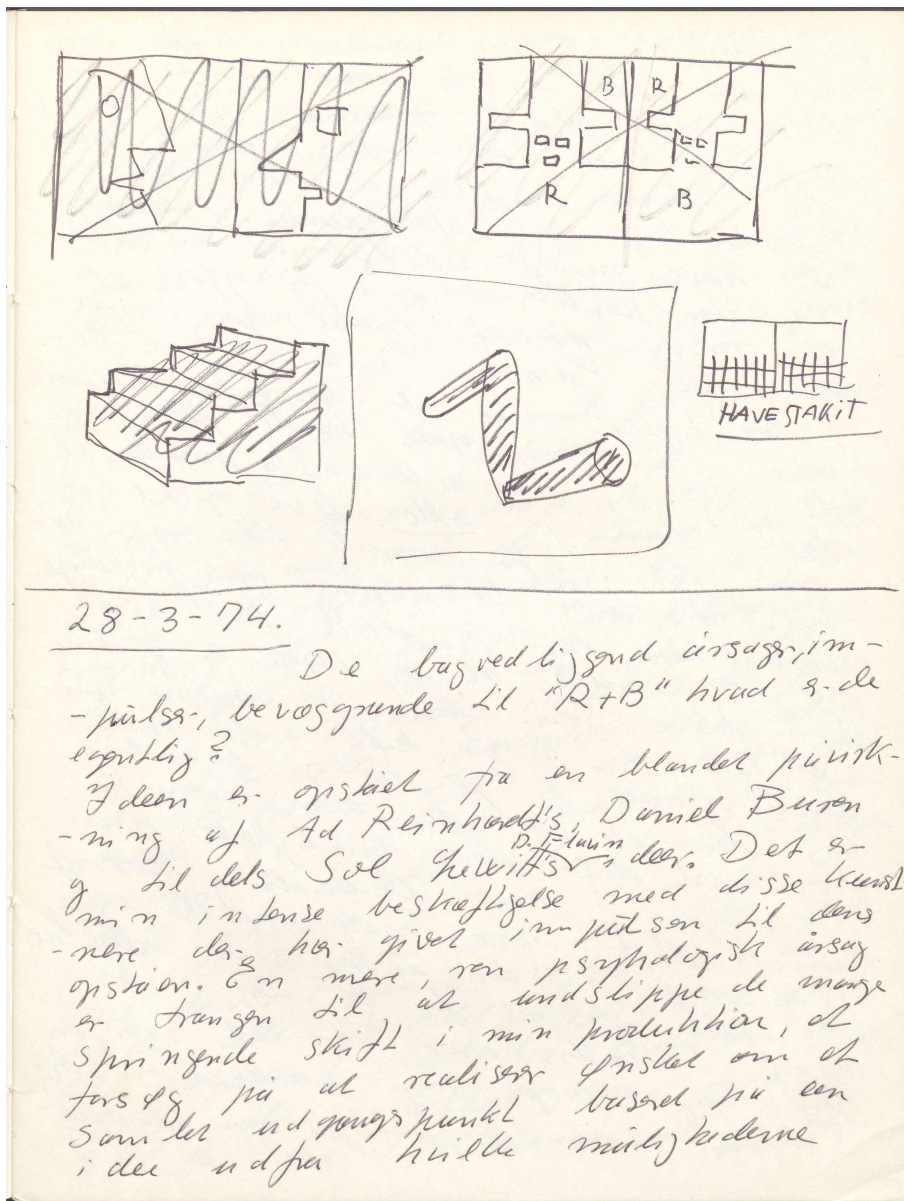 B R
R B
HAVESTAKIT
28-3-74.
De bagvedliggend årsager, im-
-pulser, bevæggrunde til "R+B" hvad er de
egentlig?
Ideen er opstået fra en blandet påvirk-
-ning af Ad Reinhardt's, Daniel Buren
D. Flavin
og til dels Sol Lewitt's ideer. Det er
min intense beskæftigelse med disse kunst
-nere der har givet impulsen til dens
opståen. En mere, ren psykologisk årsag
er trangen til at undslippe de mange
springende skift i min produktion, et
forsøg på at realiserer ønsket om et
samlet udgangspunkt baseret på een
idee udfra hvilke mulighederne